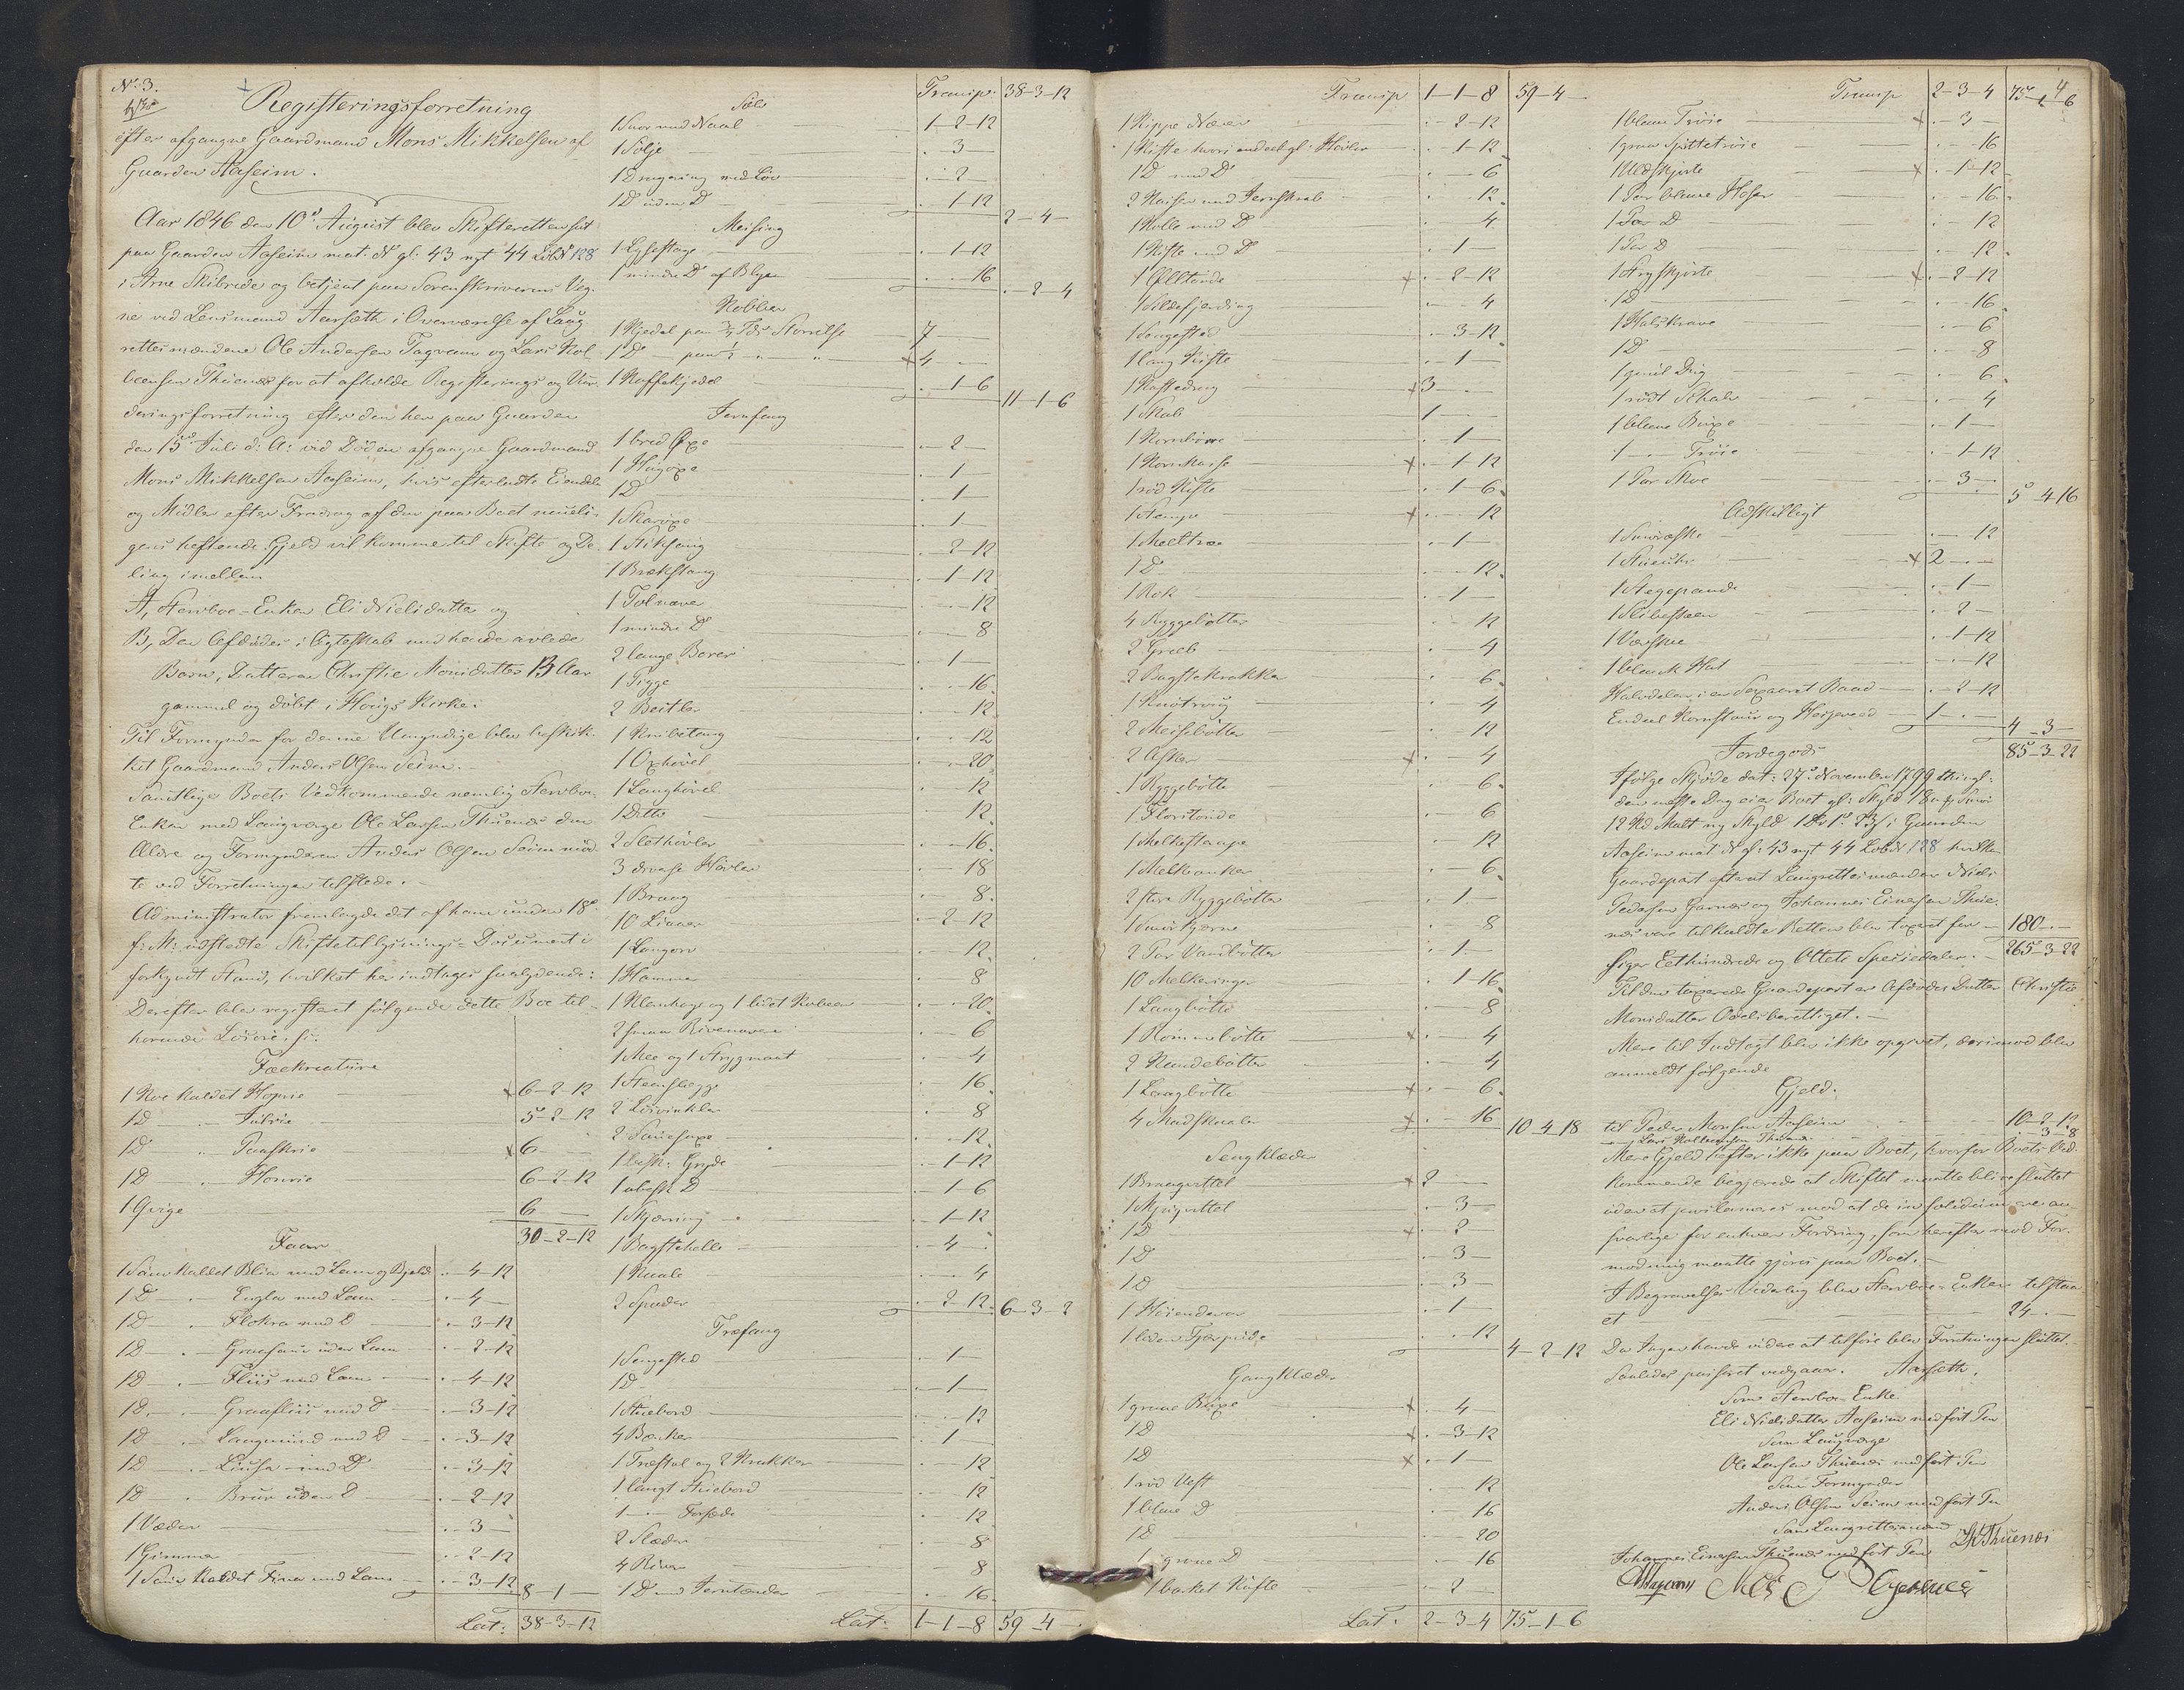 No 3.
Registeringsforretning
efter afgangne Gaardmand Mons Mikkelsen af
Gaarden Aaseim.
Aar 1846 den 10de August blev Skifteretten sat
paa Gaarden Aaseim mat. No gl. 43 nyt 44 Løb No 128
i Arne Skibrede og betjent paa Sorenskriverens Veg-
ne ved Lensmand Aarsæth i Overværelse af Laug-
rettesmændene Ole Andersen Tagvam og Lars Kol-
beensen Thuenæs for at afholde Registerings og Vur-
deringsforretning efter den her paa Gaarden
den 15de Juli d: A: ved Døden afgangne Gaardmand
Mons Mikkelsen Aaseim, hvis efterladte Eiendele
og Midler efter Fradrag af den paa Boet mueli-
gens heftende Gjeld vil komme til Skifte og De-
ling imellem
A, Sterboe-Enken Eli Nielsdatter og
B, Den Afdødes i Ægteskab med hende avlede
Barn, Datteren Christie Monsdatter 13 Aar
gammel og døbt i Hougs Kirke.
Til Formynder for denne Umyndige blev beskik-
ket Gaardmand Anders Olsen Seim.
Samtlige Boets Vedkommende nemlig Sterboe-
Enken med Laugværge Ole Larsen Thuenæs den
Ældre og Formynderen Anders Olsen Seim mød-
te ved Forretningen tilstede.
Administrator fremlagde det af ham under 18de
f: M: udstedte Skiftetillysnings-Document i
forkyndt Stand, hvilket her indtages saalydende:
Derefter blev registeret følgende dette Boe til-
hørende Løsøre, s:
Fækreature
1 Koe kaldet Hoprie 6-2-12
1 Do 5-2-12
1 Do 6
1 Do 6-2-12
1 Qvige 6
30-2-12
Faar
1 Saue kaldet Blia med Lam og Bjelde .-4-12
1 Do Engla med Lam .-4
1 Do Flokra med Do .-3-12
1 Do Graasau uden Lam .-2-12
1 Do Fliis med Lam .-4-12
1 Do Graafliis med Do .-3-12
1 Do Langmund med Do .-3-12
1 Do med Do .-3-12
1 Do Brun uden Do .-2-12
1 Væder .-3
1 Gimmer .-2-12
1 Saue kaldet Fina med Lam .-3-12 8-1
Lat: 38-3-12
Transp: 38-3-12
Sølv
1 Snor med Naal 1-2-12
1 Sølje .3
1 Do ring med Løv .-2
1 Do uden Do .1-12 2-4
Messing
1 Lysestage .1-12
1 mindre Do af Blye .-16 .-2-4
Kobber
1 Kjedel paa 3/4 Tds Størrelse 7
1 Do paa 1/2 " " 4
1 Kaffekjedel .1-6 11-1-6
Jernfang
1 bred Øxe .-2
1 Hugøxe .-1
1 Do .-1
1 Skarøxe .-1
1 Stiksaug .-2-12
1 Brækstang .-1-12
1 Tolnaver .-12
1 mindre Do 8
2 lange Borer .1
1 Pigge .-16
2 Beitler .-12
1 Knibetang .-12
1 Oxhøvel .-20
1 Langhøvel 12
1 Ditto 12
2 Slethøvler .-16
3 diverse Høvler 18
1 Braag 8
10 Liaaer .-2-12
1 Langorv .-12
1 Hammer 8
1 Klenhage og 1 lidet Kobeen .-20
2 smaa Rivenavere 6
1 Mee og 1 Strygmaat 4
1 Steenslægge 16
2 Løivinkler 8
2 Sauesaxe 12
1 besk: Gryde .-1-12
1 ubesk: Do .-1-6
1 Skjæring .-1-12
1 Bagstehelle .-4
1 Kaale 4
2 Spader .-2-12 6-3-2
Træfang
1 Sengested .-1
1 Do .-1
1 Stuebord .-12
4 Bænker .-1
1 Træstol og 2 Krakker 12
1 langt Stuebord 12
1 Forsæde 12
2 Slæder 8
4 River 8
1 Do med Jerntænder 16
Lat: 1-1-8 59-4
Transp 1-1-8 59-4
1 Kippe Næver .-2-12
1 Kiste hvori endeel gl: Høvler .-1-12
1 Do med Do .-6
2 Kasser med Jernskrab .-12
1 Kolle med Do .-4
1 Kiste med Do .-1
1 Ølltønde .-2-12
1 Sildefjerding .-4
1 Sengested .-3-12
1 lang Kiste .-1
1 Kaftedrag 3
1 Skab 1
1 Kornbørre .-1
1 Kornkasse .-1-12
1 rød Kiste .-1-6
1 Stampe .-12
1 Meeltrau .-1
1 Do .-12
1 Rok .-1
4 Ryggebøtter 12
2 Græb 4
2 Bagstekrakker 6
1 Knøtrug 4
2 Meisebøtter 12
2 Asker 4
1 Ryggebøtte 6
1 Floritønde 6
1 Melkestampe 12
1 Melkeanker 6
2 store Ryggebøtter .-1
1 Smørkjerne 8
2 Par Vandbøtter .-1
10 Melkeringer .-1-16
1 Laagbøtte 8
1 Rømmebøtte 4
2 Kandebøtter 4
1 Laagbøtte 6
4 Madskaaler 16 10-4-18
Sengklæder
1 Braagvittel 2
1 Skjugvittel .-3
1 Do .-2
1 Do .-3
1 Do .-3
1 Høiendevar .-1
1 liden Tjærpude .-12 4-2-12
Gangklæder
1 graae Buxe .-4
1 Do .-3-12
1 Do .-1
1 rød Vest 12
1 blaae Do 16
1 Do 20
1 grøne Do 16
1 barket Kofte .-2
Lat: 2-3-4 75-1-6
4
Transp 2-3-4 75-1-6
1 blaae Trøie .-3
1 graae Spøttetrøie 16
1 Uldskjorte .-1-12
1 Par blaae Hoser .-16
1 Par Do 12
1 Par Do 12
1 Strygskjorte .-2-12
1 Do 16
1 Halskrave 6
1 Do 8
1 guul Dug 6
1 rødt Schalv 4
1 blaae Buxe .-1
1 Trøie .-1-12
1 Par Skoe .-3 5-4-16
Adskilligt
1 Smøræske 12
1 Stueuhr 2
1 Stegepande .-1
1 Slibesteen .-2
1 Væskee .-1-12
1 blank Hat 12
Halvdelen i en Sexaaret Baad .-2-12
Endeel Kornstaur og Hæsjeved 1 4-3
85-3-22
Jordegods
Ifølge Skjøde dat: 27de November 1799 thingl:
den næste Dag eier Boet gl: Skyld 18 Smør
12 Kd Malt ny Skyld 1 Dr 1 ort 23 s i Gaarden
Aaseim mat: No gl: 43 nyt 44 Løb No 128 hvilken
Gaardepart efterat Laugrettesmændene Niels
Pedersen Garnæs og Johannes Einersen Thue-
næs vare tilkaldte Retten blev taxeret for 180
siger Eethundrede og Ottete Speciedaler. 265-3-22
Til den taxerede Gaardepart er Afdødes Datter Christie
Monsdatter Odelsberettiget.
Mere til Indtægt blev ikke opgivet, derimod blev
anmeldt følgende
Gjeld:
til Peder Monsen Aaseim 10-2-12
Lars Kolbeensen Thuenæs 3-8
Mere Gjeld hefter ikke paa Boet, hvorfor Boets Ved-
kommende begjærede at Skiftet maatte blive sluttet
uden at proclameres mod at de in solidum ere an-
svarlige for enhver Fordring, som herefter med For-
nødning maatte gjøres paa Boet.
I Begravelses Vederlag blev Sterboe-Enken tilstaa-
et 24
Da Ingen havde videre at tilføre blev Forretningen sluttet.
Saaledes passeret vedgaaer. Aarsæth.
Som Sterboe-Enke.
Eli Nielsdatter Aaseim med ført Pen
Som Laugværge
Ole Larsen Thuenæs med ført Pen
Som Formynder
Anders Olsen Seim med ført Pen
Som Laugrettesmænd
Johannes Einersen Thuenæs med ført Pen LKThuenæs